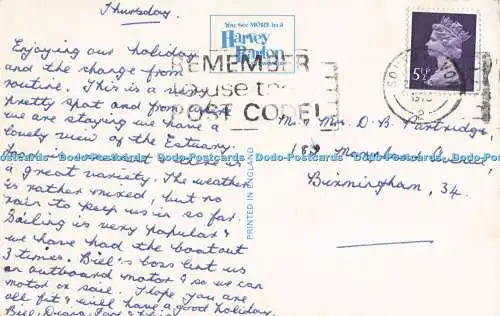 Thursday.
Enjoying our holiday
and the change from
routine. This is a very
pretty spot and from where
we are staying we have a
lovely view of the Estuary.
a great variety. The weather
is rather mixed, but no
rain to keep us in so far.
Sailing is very popular &
we have had the boat out
3 times. Biel's boss lent us
an outboard motor & so we can
motor or sail. Hope you are
all fit & will have a good holiday.
You see MORE in a
Harvey
Barton
REMEMBER
to use the
POST CODE!
5½P
Mr & Mrs D. B. Partridge,
189
Birmingham, 34.
PRINTED IN ENGLAND
Dodo-Postcards Dodo-Postcards Dodo-Postcards Dodo-Postcards Dodo-Postcards Dodo-Postcards